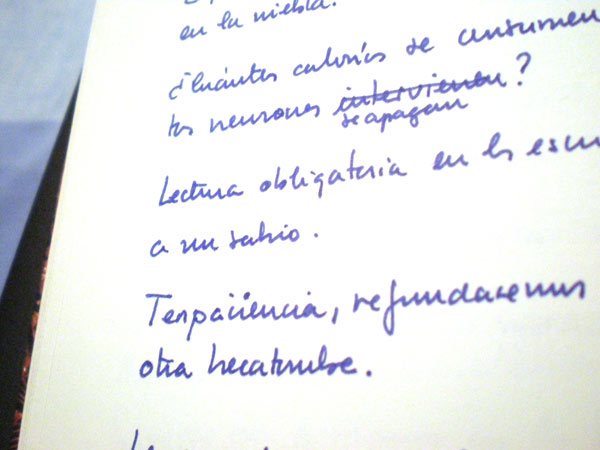 en la niebla.
¿Cuántas calorías se consumen
tas neuronas intervienen?
se apagan
Lectura obligatoria en las escu
a un sabio.
Ten paciencia, refundaremos
otra hecatombe.